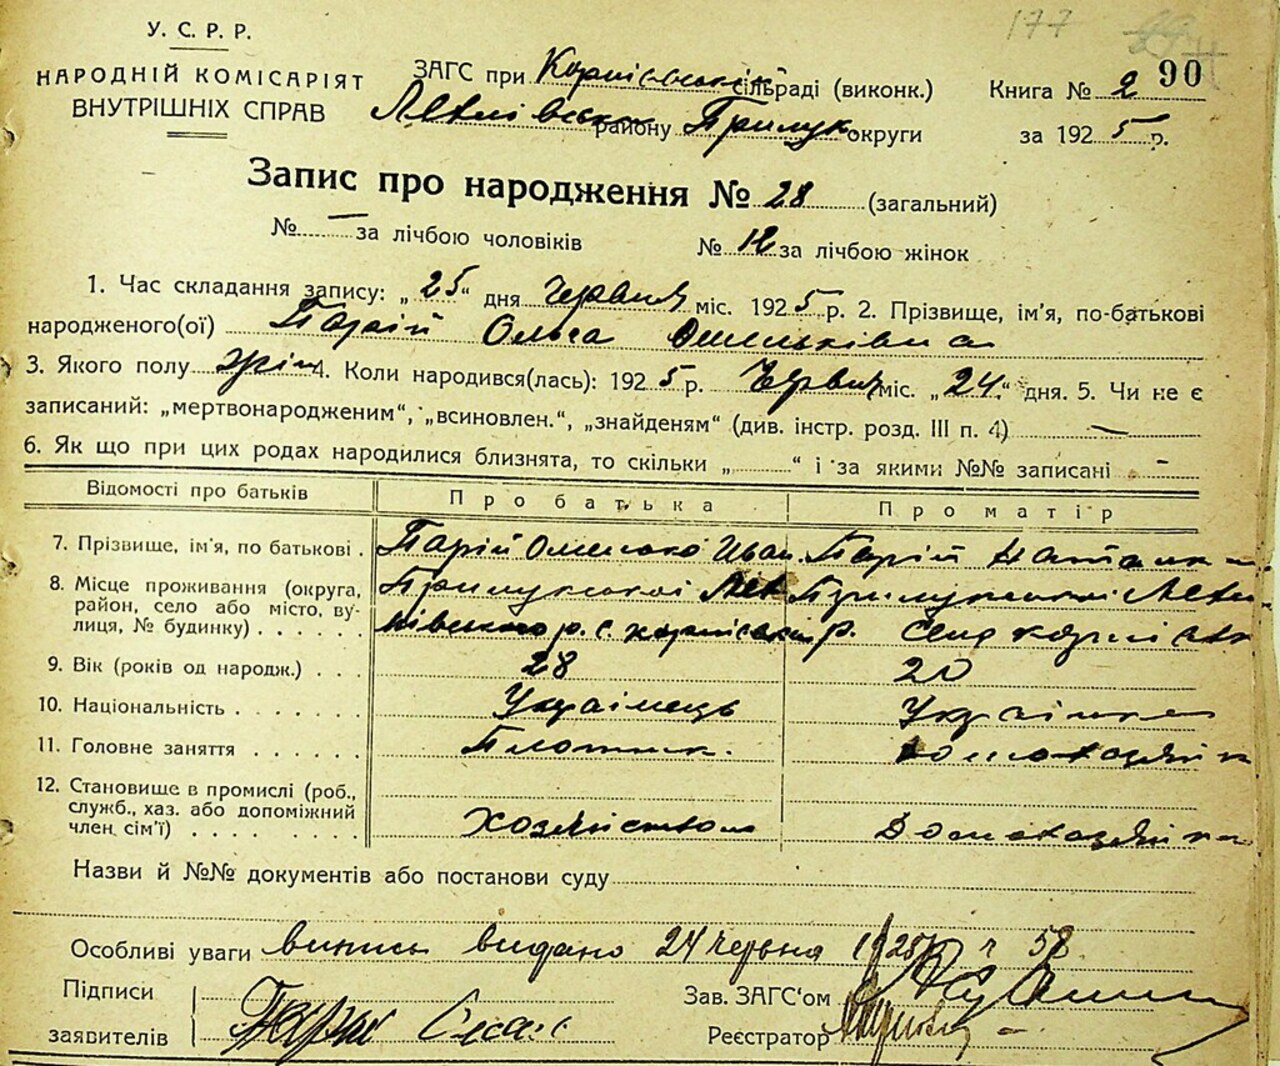 177
У. С. Р. Р.
НАРОДНІЙ КОМІСАРІЯТ
ВНУТРІШНІХ СПРАВ
ЗАГС при Корніївській сільраді (виконк.)
району Прилук. округи
Книга № 2 90
за 1925 р.
Запис про народження № 28 (загальний)
№ — за лічбою чоловіків
№ 12 за лічбою жінок
1. Час складання запису: „25“ дня Червня міс. 1925 р. 2. Прізвище, ім'я, по-батькові
народженого(ої) Парій Ольга Омельківна
3. Якого полу жін 4. Коли народився(лась): 1925 р. Червня міс. „24“ дня. 5. Чи не є
записаний: „мертвонародженим“, „всиновлен.“, „знайденям“ (див. інстр. розд. III п. 4) —
6. Як що при цих родах народилися близнята, то скільки „.........“ і за якими №№ записані –
Відомості про батьків
Про батька
Про матір
7. Прізвище, ім'я, по батькові .
Парій Омелько Иван.
Парій Наталк
8. Місце проживання (округа,
район, село або місто, ву-
лиця, № будинку) . . . . . .
Прилукської
Прилукської
р. с.
Село
9. Вік (років од народж.) . . .
28
20
10. Національність . . . . . . .
Українець
Українка
11. Головне заняття . . . . . .
Плотник.
домохазяйк
12. Становище в промислі (роб.,
служб., хаз. або допоміжний
член сім'ї) . . . . . . . .
Хозяйством
Домохазяйка
Назви й №№ документів або постанови суду
Особливі уваги випись видано 24 червня 1925 р ч 58
Підписи
заявителів
Парій
Зав. ЗАГС'ом
Реєстратор